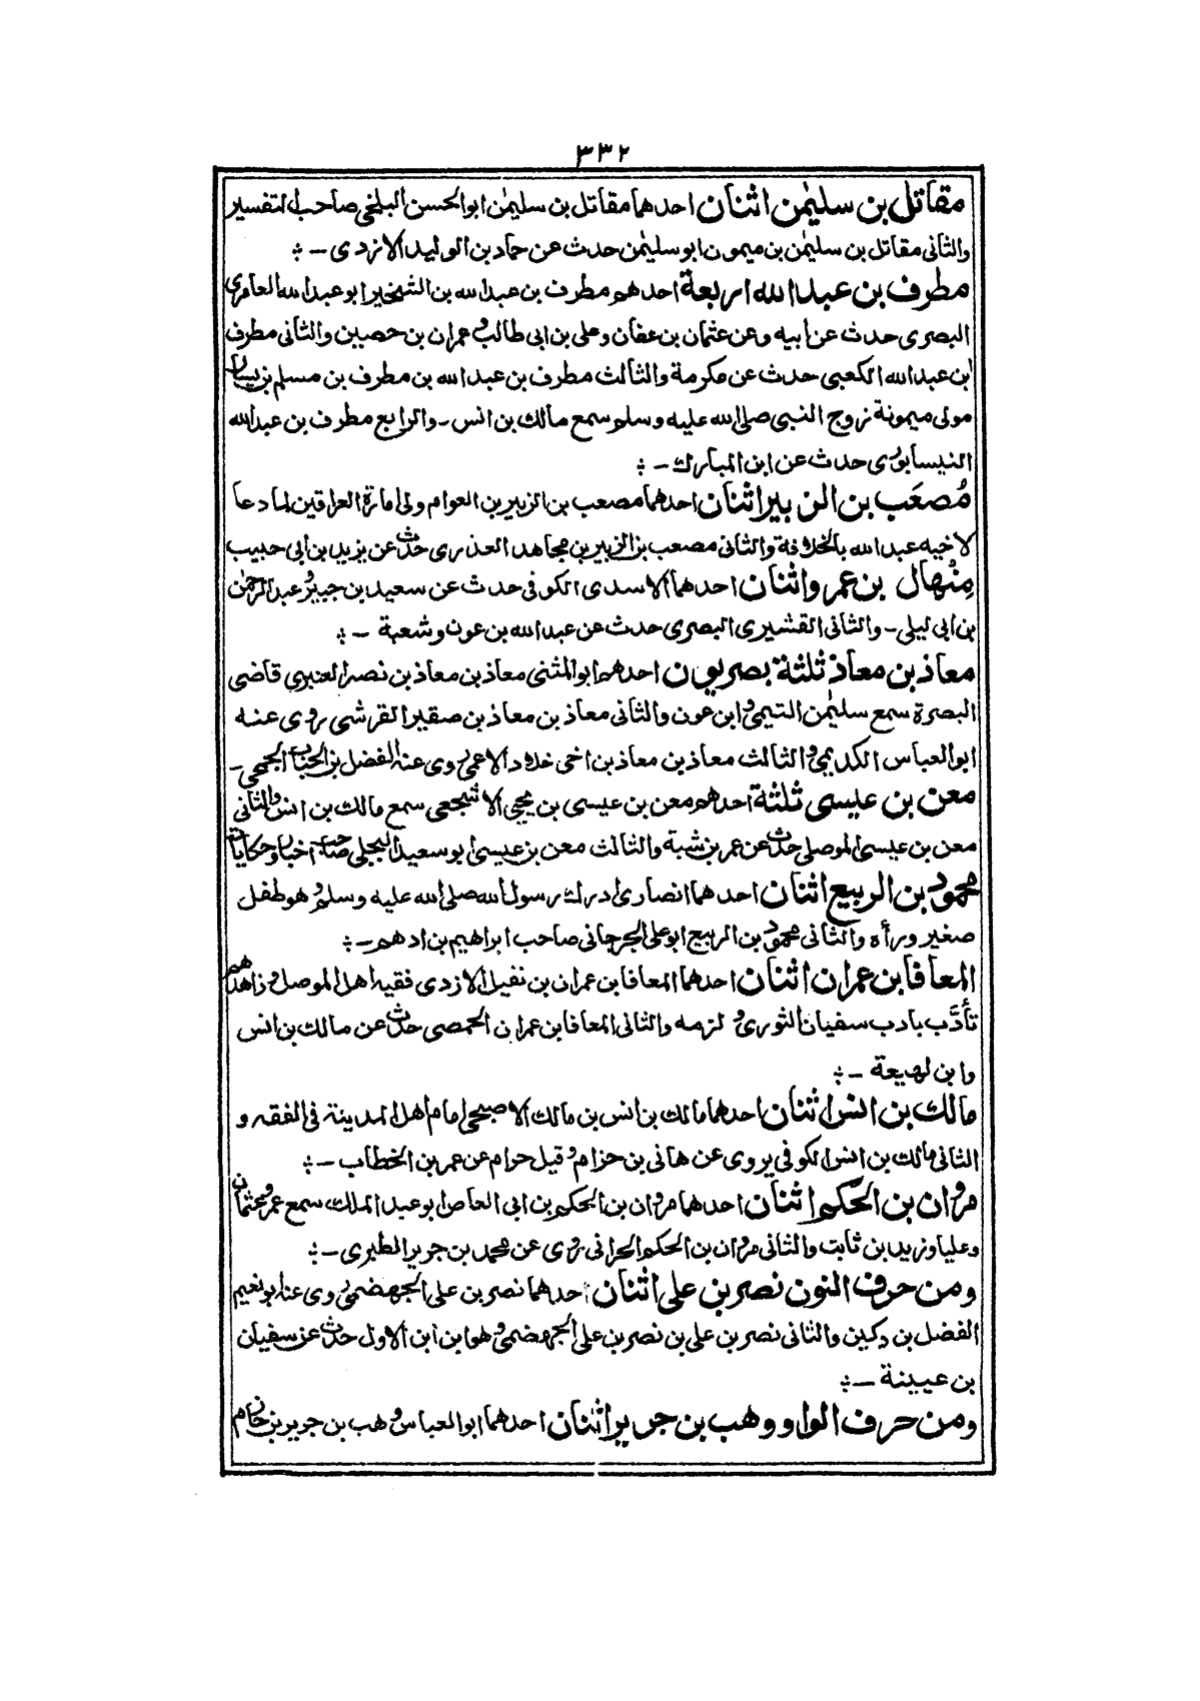 ٣٣٢
مقاتل بن سليمٰن اثنان احدهما مقاتل بن سليمٰن ابو الحسن البلخي صاحب التفسير
والثانى مقاتل بن سليمٰن بن ميمون ابو سليمٰن حدث عن حماد بن الوليد الازدى ـ ؞
مطرف بن عبد الله اربعة احدهم مطرف بن عبد الله بن الشخير ابو عبد الله العامرى
البصرى حدث عن ابيه وعن عثمان بن عفان وعلى بن ابى طالب و عمران بن حصين والثانى مطرف
ابن عبد الله الكعبى حدث عن عكرمة والثالث مطرف بن عبد الله بن مطرف بن مسلم بن يسار
مولى ميمونة زوج النبى صلى الله عليه وسلم سمع مالك بن انس ـ والرابع مطرف بن عبد الله
النيسابورى حدث عن ابن المبارك ـ ؞
مُصعَب بن الزبير اثنان احدهما مصعب بن الزبير بن العوام ولى امارة العراقين لما دعا
لاخيه عبد الله بالخلافة والثانى مصعب بن الزبير بن مجاهد العذرى حدث عن يزيد بن ابى حبيب
مِنهال بن عمرو اثنان احدهما الاسدى الكوفى حدث عن سعيد بن جبير و عبد الرحمٰن
بن ابى ليلى ـ والثانى القشيرى البصرى حدث عن عبد الله بن عون وشعبة ـ ؞
معاذ بن معاذ ثلثة بصريون احدهم ابو المثنى معاذ بن معاذ بن نصر العنبرى قاضى
البصرة سمع سليمٰن التيمى و ابن عون والثانى معاذ بن معاذ بن صقير القرشى روى عنه
ابو العباس الكديمى و الثالث معاذ بن معاذ بن اخى خلاد الاعمى روى عنه الفضل بن الحباب الجمحى ـ
معن بن عيسى ثلثة احدهم معن بن عيسى بن يحيى الاشجعى سمع مالك بن انس والثانى
معن بن عيسى الموصلى حدث عن عمر بن شبة والثالث معن بن عيسى ابو سعيد البجلى صاحب اخبار و حكايات
محمود بن الربيع اثنان احدهما انصارى ادرك رسول الله صلى الله عليه وسلم و هو طفل
صغير ورأه والثانى محمود بن الربيع ابو على الجرجانى صاحب ابراهيم بن ادهم ـ ؞
المعافا بن عمران اثنان احدهما المعافا بن عمران بن نفيل الازدى فقيه اهل الموصل و زاهدهم
تأدَّب بادب سفيان الثورى و لزمه والثانى المعافا بن عمران الحمصى حدث عن مالك بن انس
وابن لهيعة ـ ؞
مالك بن انس اثنان احدهما مالك بن انس بن مالك الاصبحى امام اهل المدينة فى الفقه و
الثانى مالك بن انس الكوفى يروى عن هانى بن حزام و قيل حرام عن عمر بن الخطاب ـ ؞
مروان بن الحَكم اثنان احدهما مروان بن الحكم بن ابى العاص ابو عبد الملك سمع عمر و عثمان
وعليا وزيد بن ثابت والثانى مروان بن الحكم الحرانى روى عن محمد بن جرير الطبرى ـ ؞
ومن حرف النون نصر بن على اثنان احدهما نصر بن على الجهضمى روى عنه ابو نعيم
الفضل بن دكين والثانى نصر بن على بن نصر بن على الجهضمى و هو ابن ابن الاول حدث عن سفيان
بن عيينة ـ ؞
ومن حرف الواو وهب بن جرير اثنان احدهما ابو العباس وهب بن جرير بن حازم